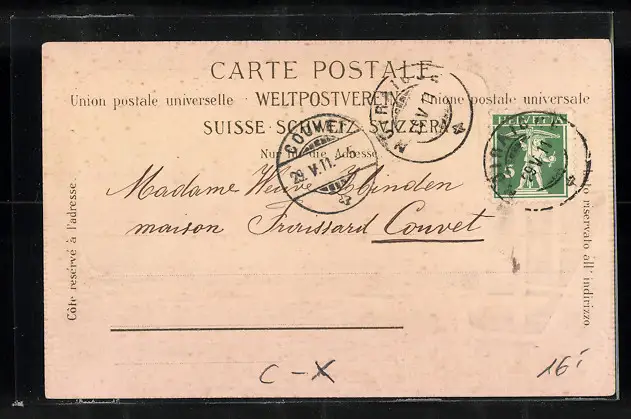 CARTE POSTALE
Union postale universelle WELTPOSTVEREIN Unione postale universale
SUISSE SCHWEIZ SVIZZERA
HELVETIA
COUVET
29.V.11.
Nur für die Adresse
Madame Veuve
maison Froissard Couvet
Côté réservé à l'adresse.
Lato riservato all' indirizzo
C-X
16